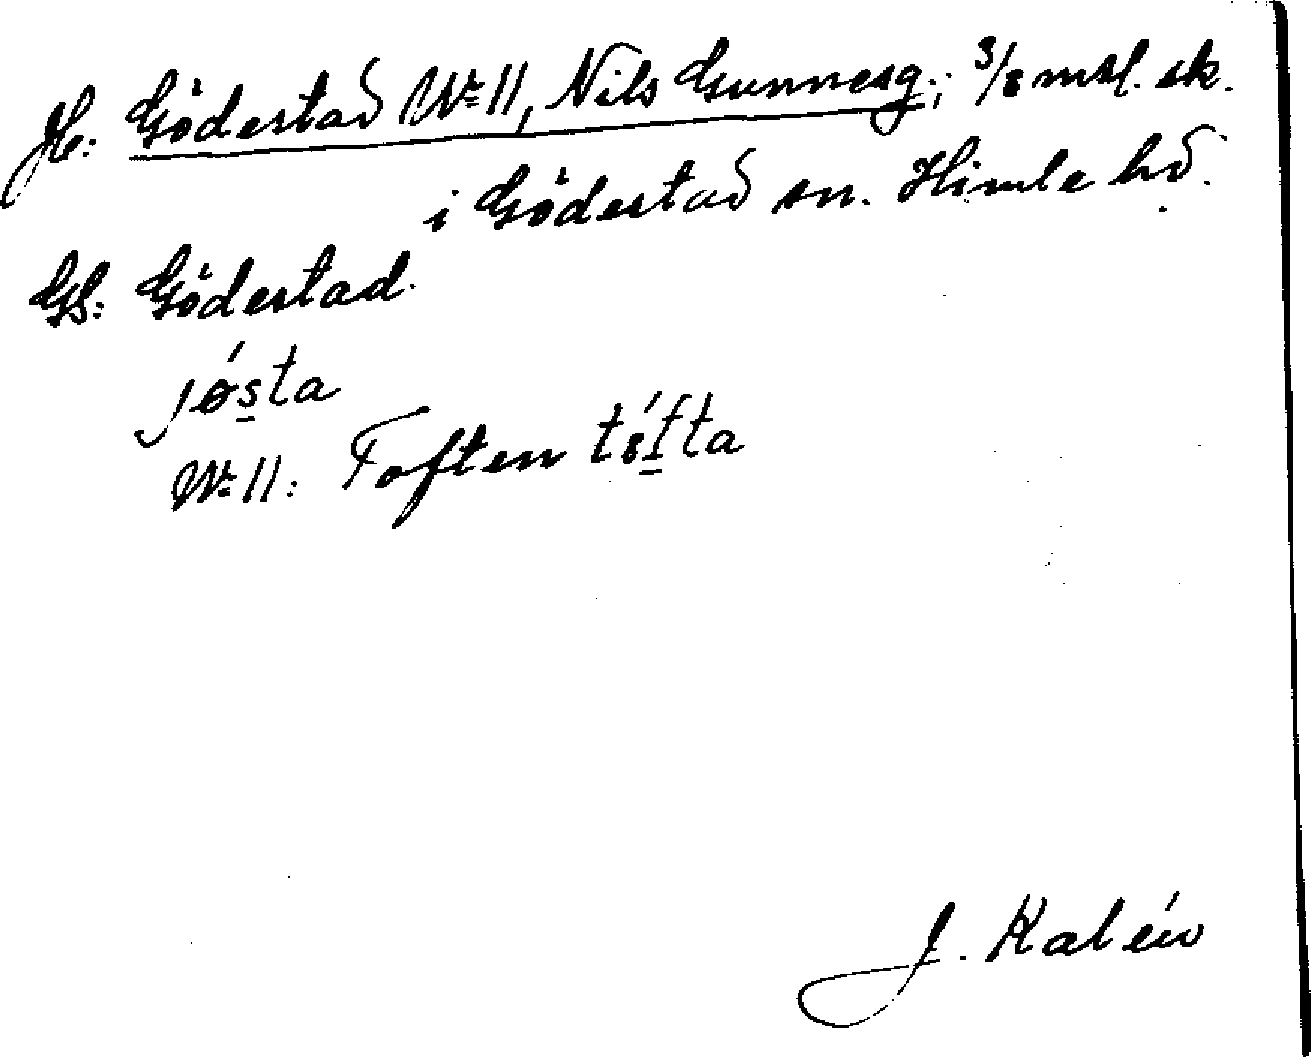 H: Gödestad No 11, Nils Gunnesg.; 3/8 mtl. sk.
i Gödestad sn. Himle hd.
GS: Gödestad.
jøsta
No 11: Toften
J. Kalén